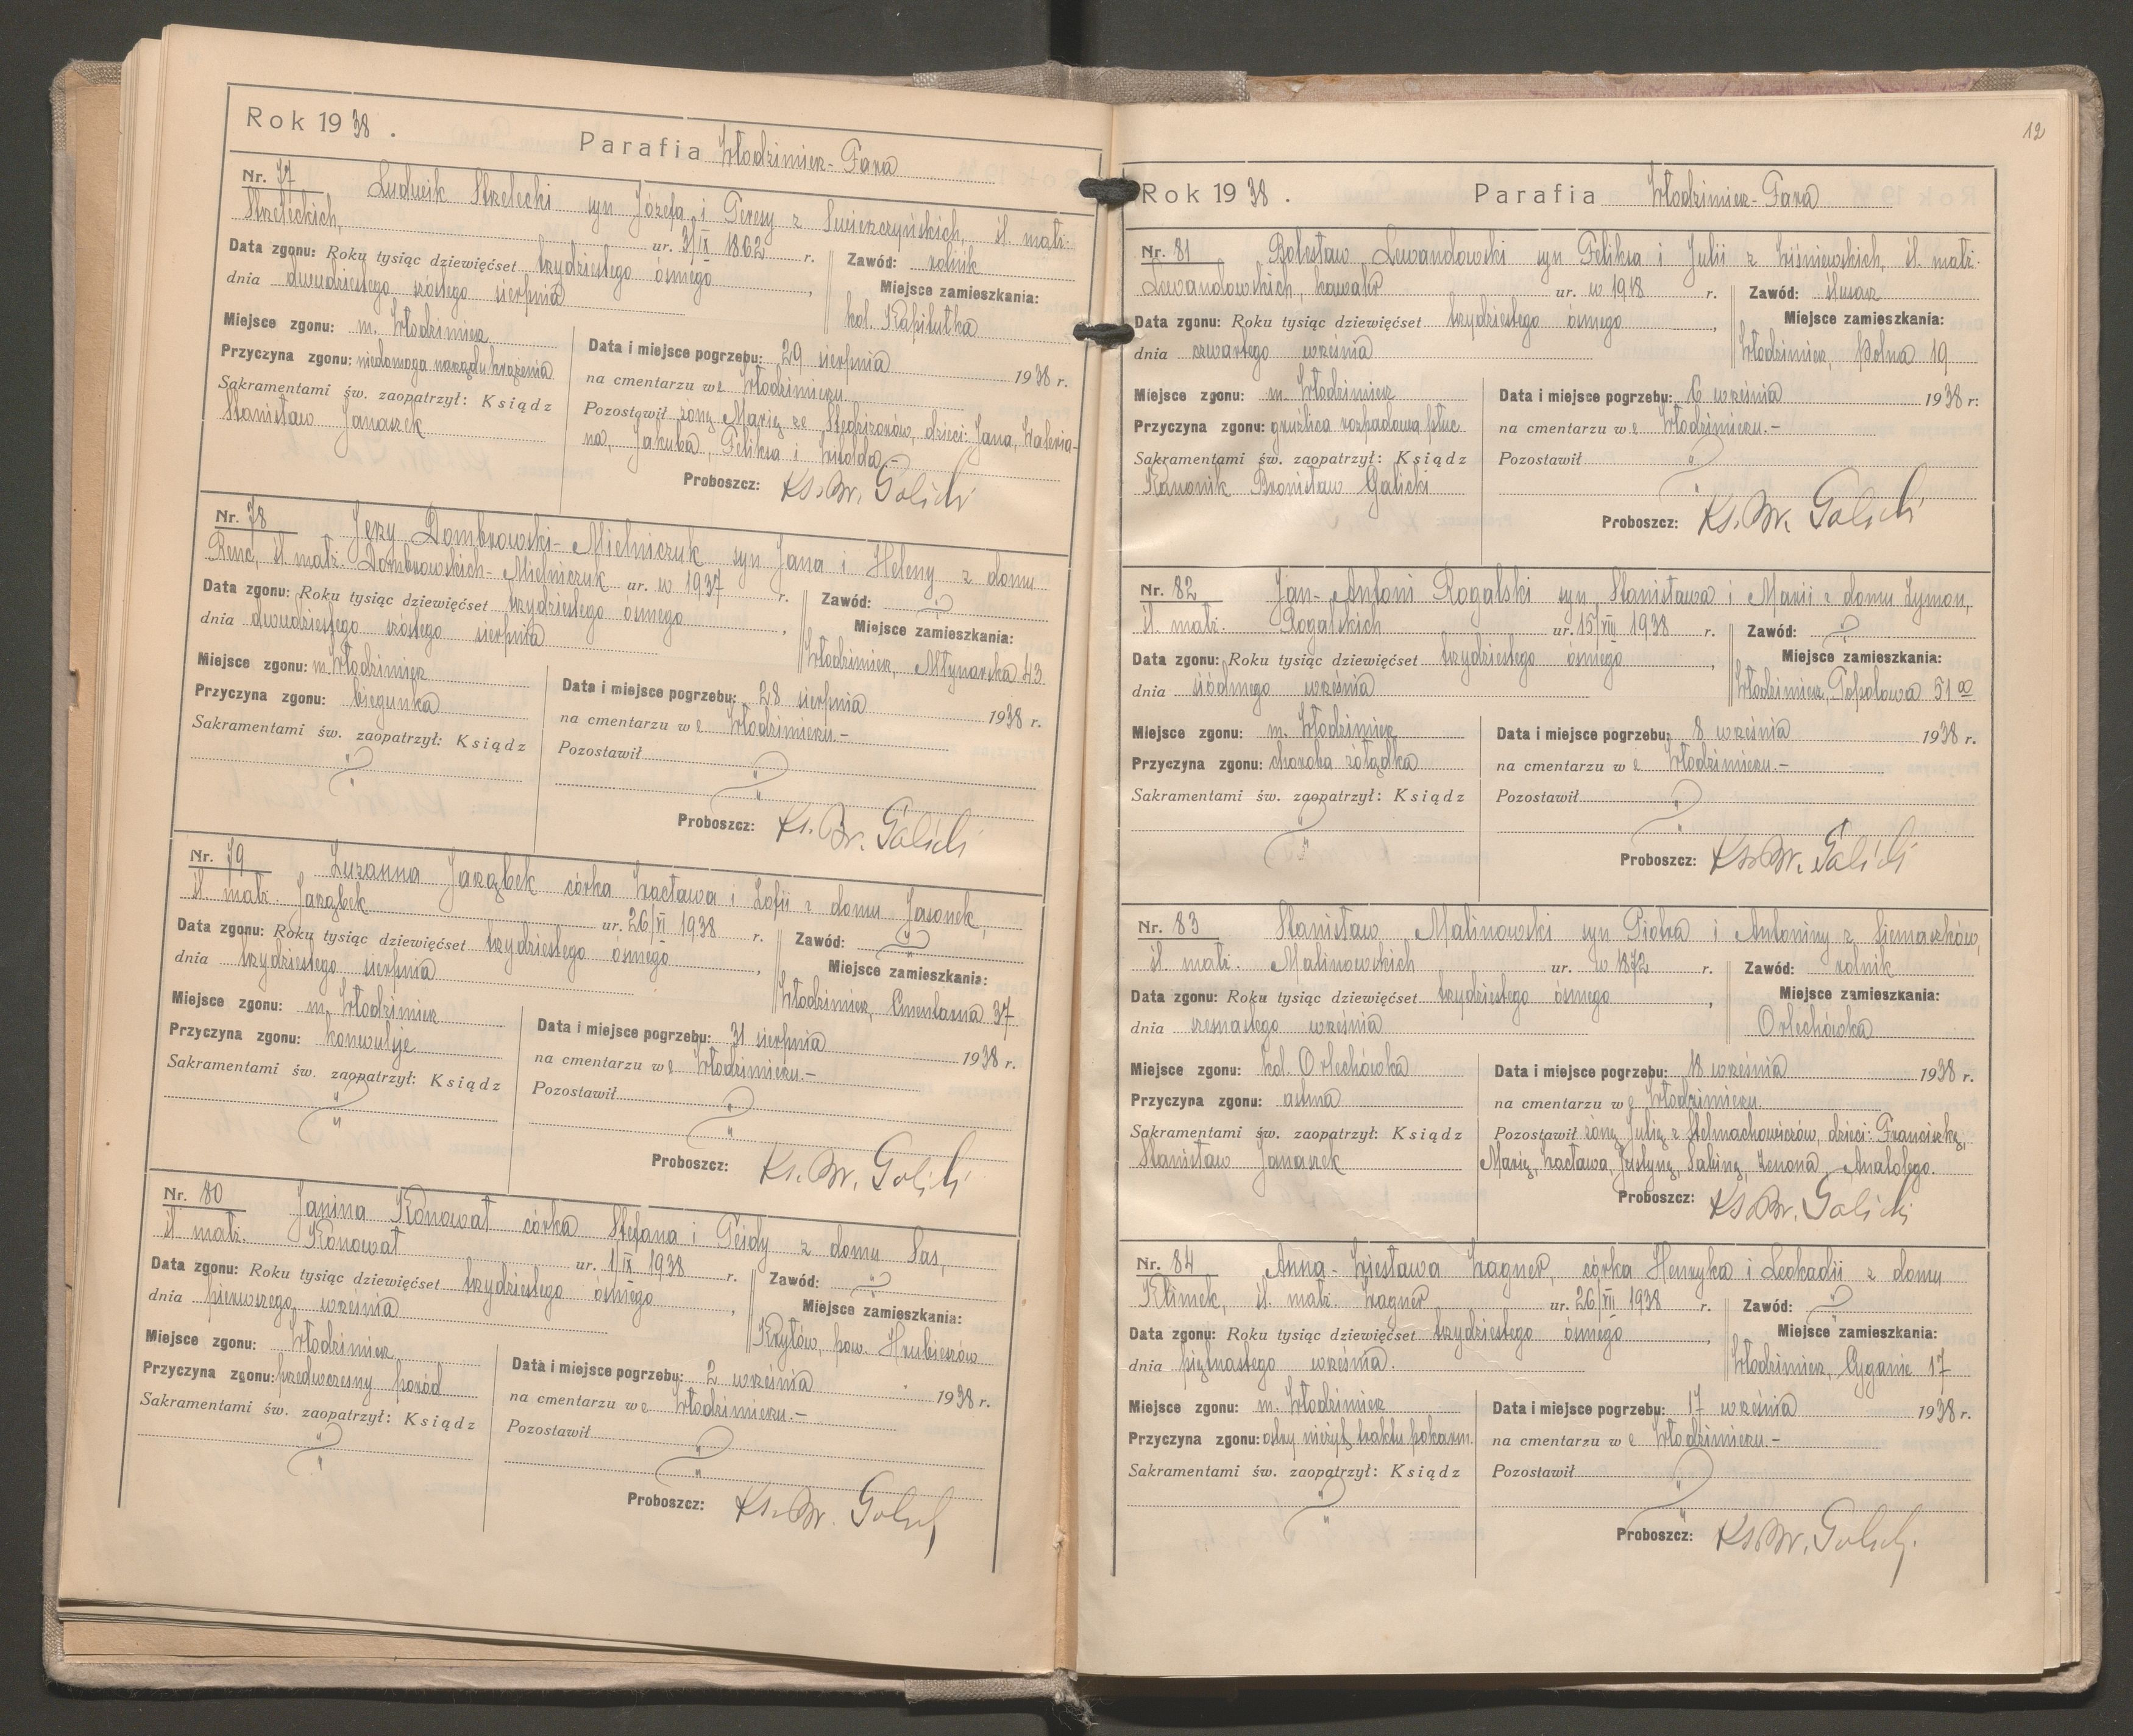 Rok 1938.
Parafia Włodzimierz-Fara
Nr. 77 Ludwik Strzelecki syn Józefa i Teresy z Świerczyńskich, śl. małż.
Strzeleckich, ur. 3/IX 1862 r.
Data zgonu: Roku tysiąc dziewięćset trzydziestego ósmego,
dnia dwudziestego szóstego sierpnia
Zawód: rolnik
Miejsce zamieszkania:
kol. Kapitułka
Miejsce zgonu: m. Włodzimierz
Przyczyna zgonu: niedomoga narządu krążenia
Sakramentami św. zaopatrzył: Ksiądz
Stanisław Janaszek
Data i miejsce pogrzebu: 29 sierpnia 1938 r.
na cmentarzu we Włodzimierzu.
Pozostawił żonę Marię ze dzieci: Jana, Waleria-
na, Jakuba, Feliksa i Witolda.-
Proboszcz: Ks. Br. Galicki
Nr. 78 Jerzy Dombrowski-Mielniczuk syn Jana i Heleny z domu
Renc, śl. małż. Dombrowskich-Mielniczuk ur. w 1937 r.
Data zgonu: Roku tysiąc dziewięćset trzydziestego ósmego,
dnia dwudziestego szóstego sierpnia
Zawód:
Miejsce zamieszkania:
Włodzimierz, Młynarska 43
Miejsce zgonu: m. Włodzimierz
Przyczyna zgonu: biegunka
Sakramentami św. zaopatrzył: Ksiądz
Data i miejsce pogrzebu: 28 sierpnia 1938 r.
na cmentarzu we Włodzimierzu.-
Pozostawił
Proboszcz: Ks. Br. Galicki
Nr. 79 Zuzanna Jarząbek córka Wacława i Zofii z domu Jasonek,
śl. małż. Jarząbek ur. 26/VI 1938 r.
Data zgonu: Roku tysiąc dziewięćset trzydziestego ósmego,
dnia trzydziestego sierpnia
Zawód:
Miejsce zamieszkania:
Włodzimierz, Cmentarna 37
Miejsce zgonu: m. Włodzimierz
Przyczyna zgonu: konwulsje
Sakramentami św. zaopatrzył: Ksiądz
Data i miejsce pogrzebu: 31 sierpnia 1938 r.
na cmentarzu we Włodzimierzu.-
Pozostawił
Proboszcz: Ks. Br. Galicki
Nr. 80 Janina Konował córka Stefana i z domu Sas,
śl. małż. Konował ur. 1/IX 1938 r.
Data zgonu: Roku tysiąc dziewięćset trzydziestego ósmego,
dnia pierwszego września
Zawód:
Miejsce zamieszkania:
Kryłów, pow. Hrubieszów
Miejsce zgonu: Włodzimierz
Przyczyna zgonu: przedwczesny poród
Sakramentami św. zaopatrzył: Ksiądz
Data i miejsce pogrzebu: 2 września 1938 r.
na cmentarzu we Włodzimierzu.-
Pozostawił
Proboszcz: Ks. Br. Galicki
12
Rok 1938.
Parafia Włodzimierz-Fara
Nr. 81 Bolesław Lewandowski syn Feliksa i Julii z Wiśniewskich, śl. małż.
Lewandowskich, kawaler ur. w 1918 r.
Zawód: ślusarz
Data zgonu: Roku tysiąc dziewięćset trzydziestego ósmego,
dnia czwartego września
Miejsce zamieszkania:
Włodzimierz, Polna 19
Miejsce zgonu: m. Włodzimierz
Przyczyna zgonu: gruźlica rozpadowa płuc
Sakramentami św. zaopatrzył: Ksiądz
Kanonik Bronisław Galicki
Data i miejsce pogrzebu: 6 września 1938 r.
na cmentarzu we Włodzimierzu.-
Pozostawił
Proboszcz: Ks. Br. Galicki
Nr. 82 Jan-Antoni Rogalski syn Stanisława i Marii z domu Zymon,
śl. małż. Rogalskich ur. 15/VIII 1938 r.
Zawód:
Data zgonu: Roku tysiąc dziewięćset trzydziestego ósmego,
dnia siódmego września
Miejsce zamieszkania:
Włodzimierz, Topolowa 51
Miejsce zgonu: m. Włodzimierz
Przyczyna zgonu: choroba żołądka
Sakramentami św. zaopatrzył: Ksiądz
Data i miejsce pogrzebu: 8 września 1938 r.
na cmentarzu we Włodzimierzu.-
Pozostawił
Proboszcz: Ks. Br. Galicki
Nr. 83 Stanisław Malinowski syn Piotra i Antoniny z Siemaszków,
śl. małż. Malinowskich ur. w 1872 r.
Zawód: rolnik
Data zgonu: Roku tysiąc dziewięćset trzydziestego ósmego,
dnia szesnastego września
Miejsce zamieszkania:
Orlechówka
Miejsce zgonu: kol. Orlechówka
Przyczyna zgonu: astma
Sakramentami św. zaopatrzył: Ksiądz
Stanisław Janaszek
Data i miejsce pogrzebu: 18 września 1938 r.
na cmentarzu we Włodzimierzu.
Pozostawił żonę Julię z Stelmachowiczów, dzieci: Franciszkę,
Marię, Wacława, Justynę, Sabinę, Zenona, Anatolego.
Proboszcz: Ks. Br. Galicki
Nr. 84 Anna-Wiesława Wagner, córka Henryka i Leokadii z domu
Klimek, śl. małż. Wagner ur. 26/VII 1938 r.
Zawód:
Data zgonu: Roku tysiąc dziewięćset trzydziestego ósmego,
dnia piętnastego września.
Miejsce zamieszkania:
Włodzimierz, Cyganie 17
Miejsce zgonu: m. Włodzimierz
Przyczyna zgonu: ostry nieżyt traktu pokarm.
Sakramentami św. zaopatrzył: Ksiądz
Data i miejsce pogrzebu: 17 września 1938 r.
na cmentarzu we Włodzimierzu.-
Pozostawił
Proboszcz: Ks. Br. Galicki